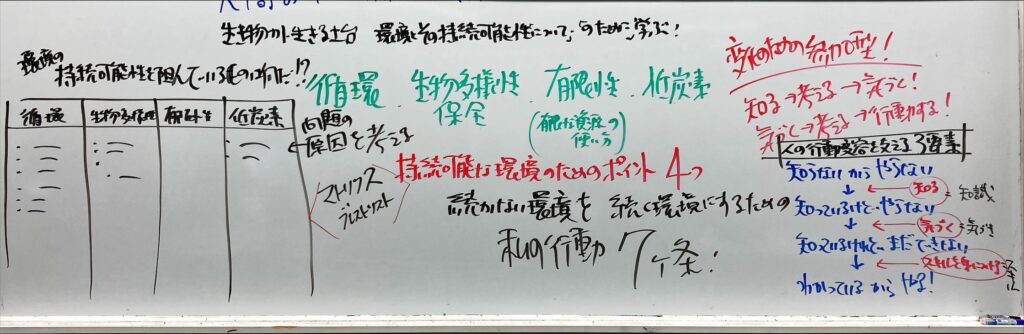 生き物が生きる土台 環境とその持続可能性について、のために学ぶ!
環境の
持続可能性を阻んでいるものは何だ!?
循環
生物多様性
有限性
低炭素
問題の
原因を考える
マトリクス
ブレストリスト
循環、生物多様性
保全
有限性、低炭素
(有限な資源の
使い方)
持続可能な環境のためのポイント4つ
続かない環境を続く環境にするための
私の行動7ヶ条!
変わるための参加型!
知る→考える→気づく!
気づく→考える→行動する!
人の行動変容を支える3要素
知らないからやらない
知る = 知識
知っているけど、やらない
気づく = 気づき
知っているけれど、まだできない
スキルを身につける
わかっているからやる!